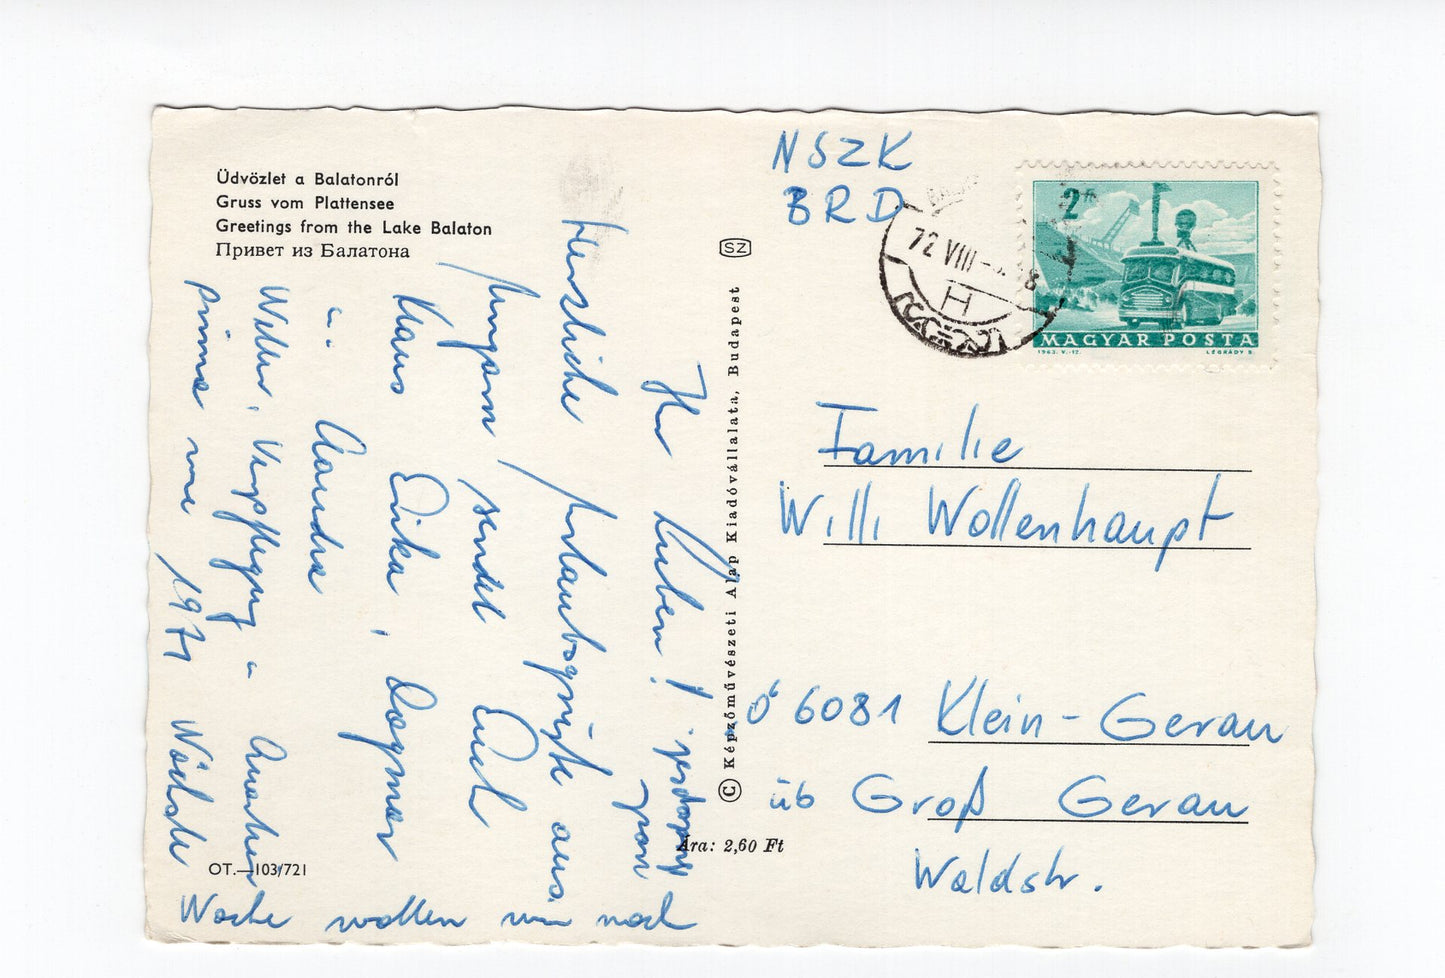 Üdvözlet a Balatonról
Gruss vom Plattensee
Greetings from the Lake Balaton
Привет из Балатона
SZ
© Képzőművészeti Alap Kiadóvállalata, Budapest
Ára: 2,60 Ft
OT.—103/721
NSZK
BRD
72 VIII
H
2
MAGYAR POSTA
1963. V.-12.
LÉGRÁDY S.
Familie
Willi Wollenhaupt
6081 Klein-Gerau
üb Groß Gerau
Waldstr.
Ihr Lieben!
Herzliche Urlaubsgrüße aus
Ungarn sendet Euch
Klaus Erika, Dagmar
u. Sandra
Wetter, Verpflegung u
prima wie 1971 Nächste
Woche wollen wir noch